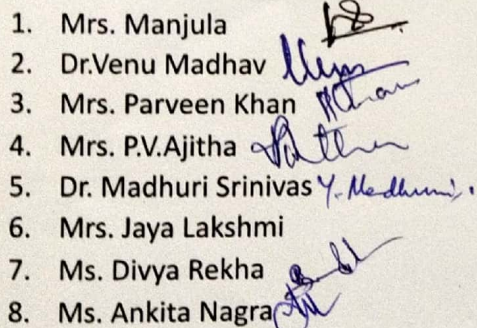 1. Mrs. Manjula
2. Dr.Venu Madhav
3. Mrs. Parveen Khan
4. Mrs. P.V.Ajitha
5. Dr. Madhuri Srinivas Y. Madhuri
6. Mrs. Jaya Lakshmi
7. Ms. Divya Rekha
8. Ms. Ankita Nagra